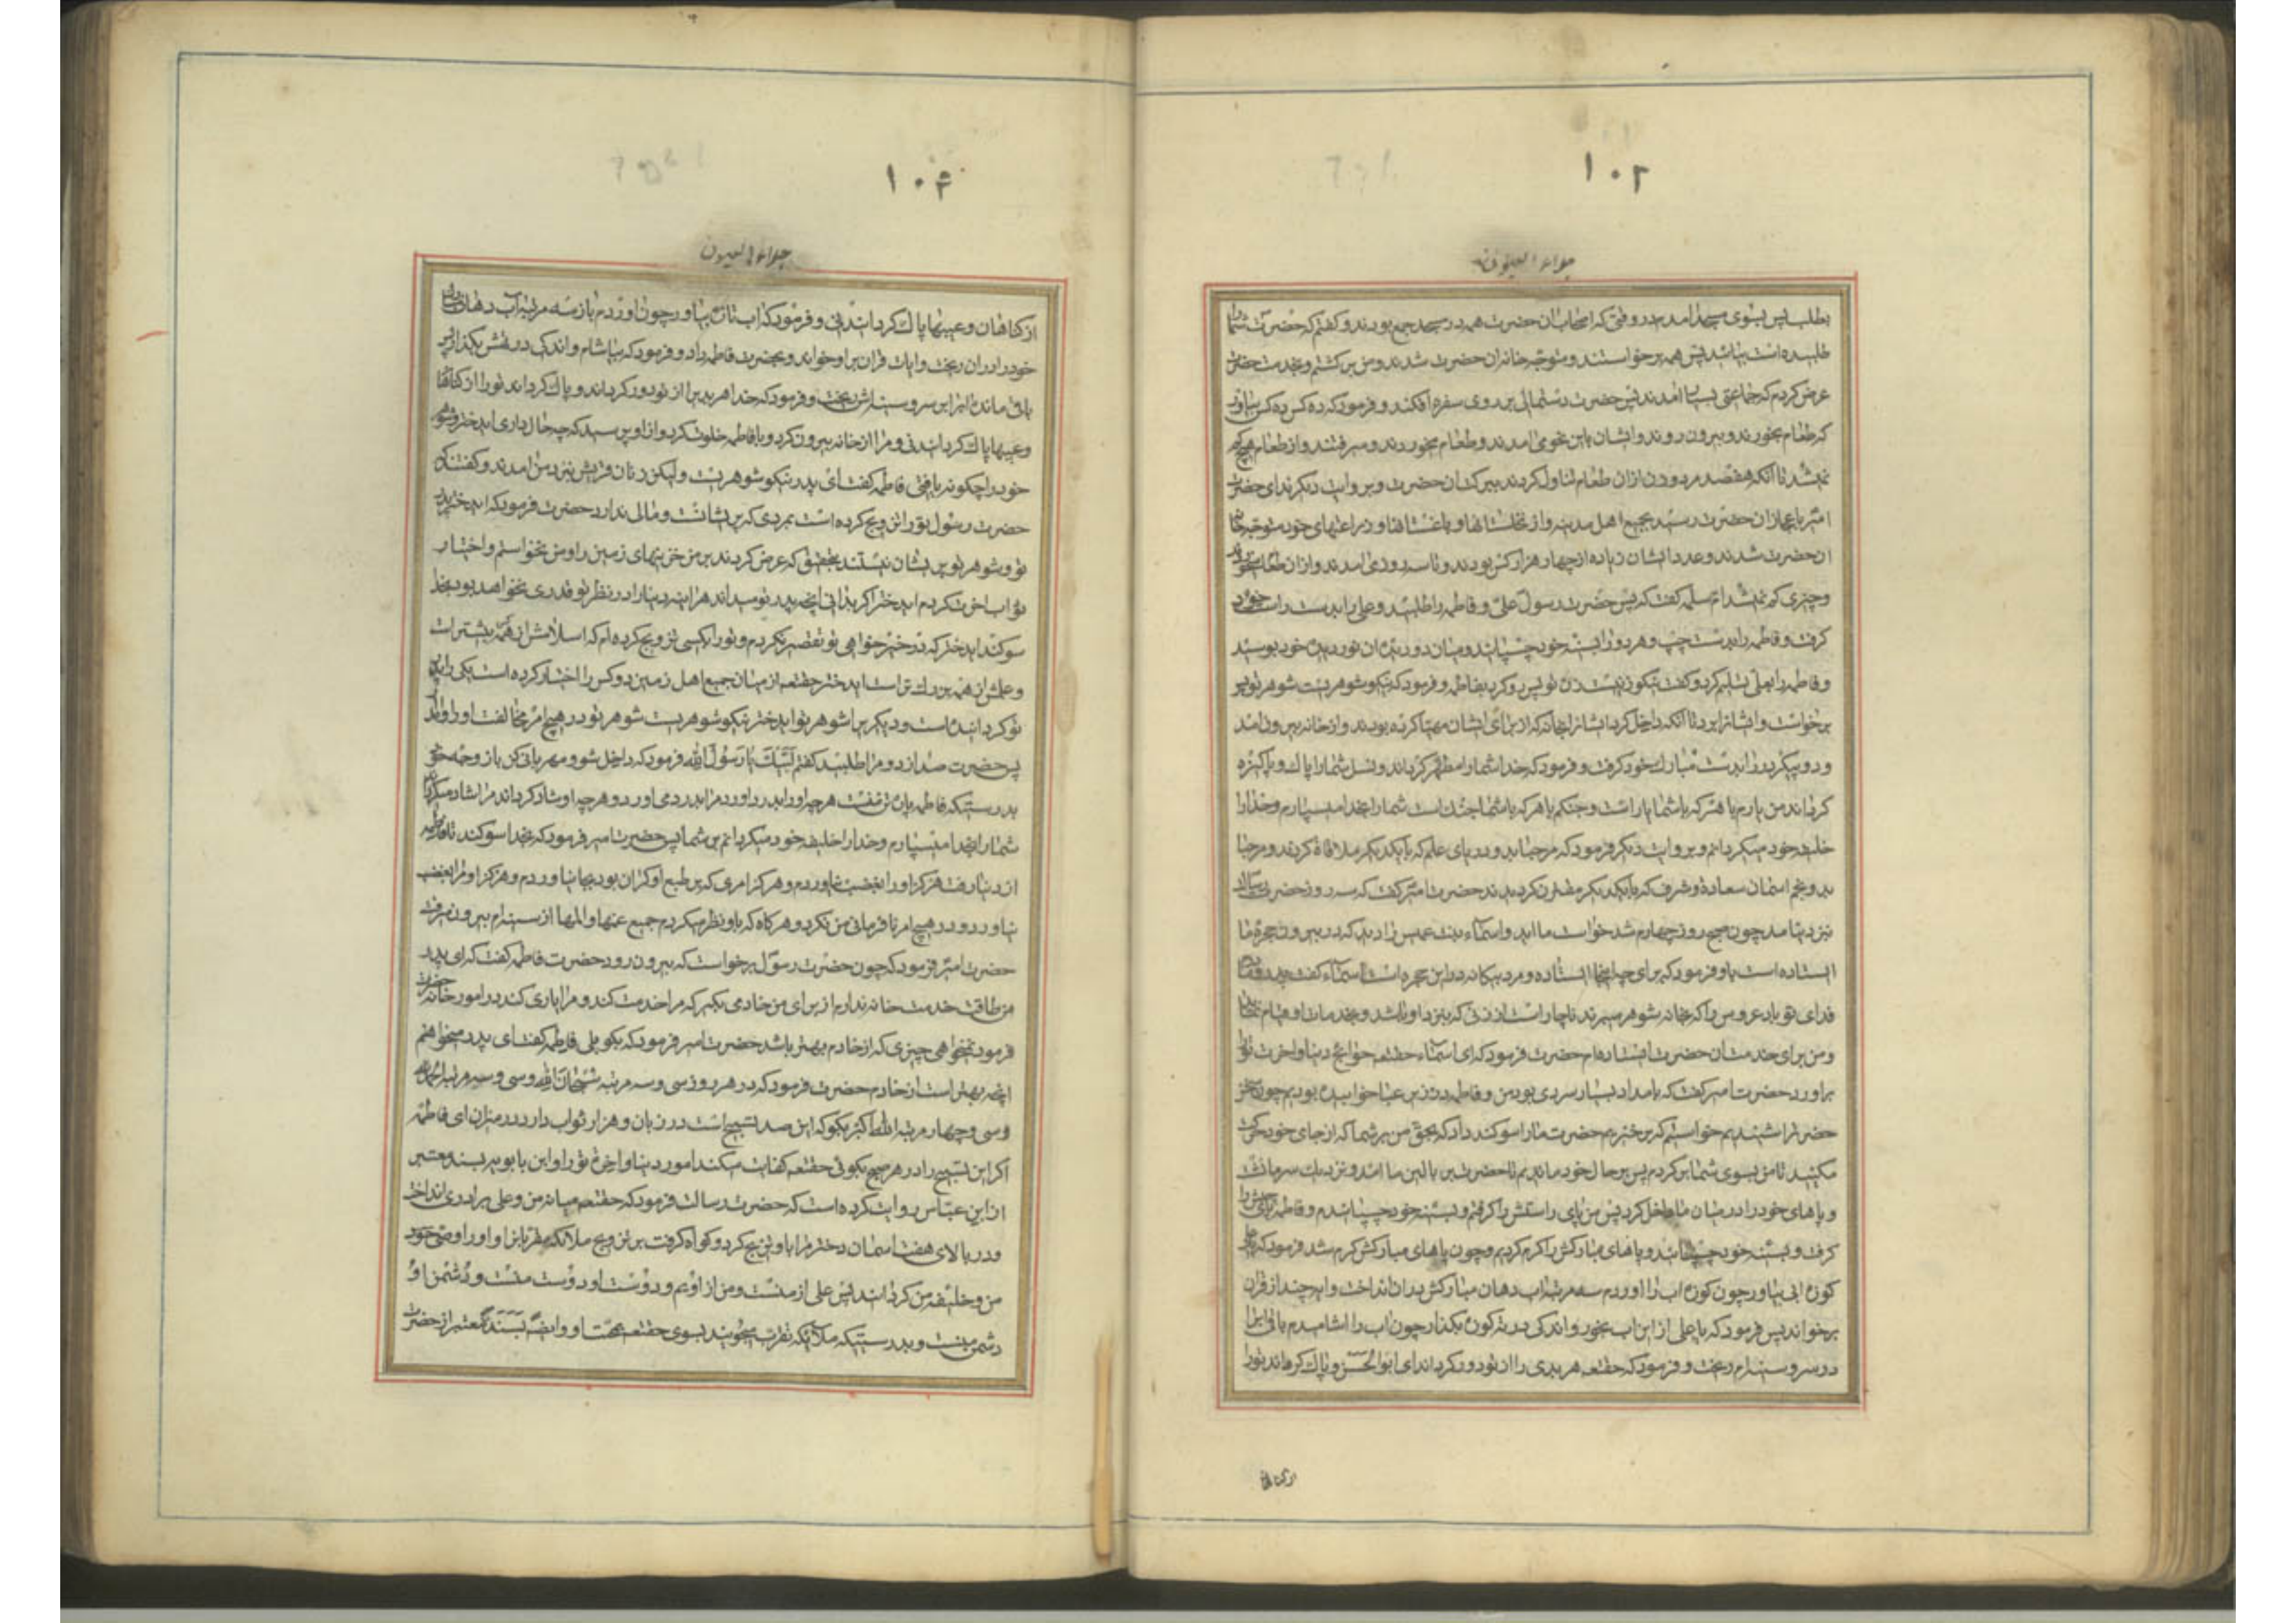 ۱۰۲
جلاء العیون
بطلب پس بسوی مسجد آمدم در وقتی که اصحاب آن حضرت همه در مسجد جمع بودند و گفتم که حضرت شما را
طلبیده است بیائید پس همه برخواستند و متوجه خانه آن حضرت شدند و من برگشتم و بخدمت حضرت
عرض کردم که جماعتی بسیار آمدند پس حضرت دستمالی بر روی سفره افکند و فرمود که ده کس ده کس بیاور
که طعام بخورند و بیرون روند و ایشان باین نحو می آمدند و طعام میخوردند و میرفتند و از طعام هیچ کم
نمیشد تا آنکه هفتصد مرد و زن از آن طعام تناول کردند ببرکت آن حضرت و بروایت دیگر ندای حضرت
امیر باعجاز آن حضرت رسید بجمیع اهل مدینه و از نخلستانها و باغستانها و زراعتهای خود متوجه خانه
آن حضرت شدند و عدد ایشان زیاده از چهار هزار کس بودند و تا سه روز می آمدند و از آن طعام میخوردند
و چیزی کم نمیشد ام سلمه گفت که پس حضرت رسول علی و فاطمه را طلبید و علی را بدست راست خود
گرفت و فاطمه را بدست چپ و هر دو را بسینه خود چسپانید و میان دو دیده آن نور دیده خود بوسید
و فاطمه را بعلی تسلیم کرد و گفت نیکو زنیست زن تو پس رو کرد بفاطمه و فرمود که نیکو شوهریست شوهر تو پس
برخواست و ایشانرا برد تا آنکه داخل کرد ایشانرا بخانه که از برای ایشان مهیا کرده بودند و از خانه بیرون آمد
و دو پیکر در را بدست مبارک خود گرفت و فرمود که خدا شما را مطهر گرداند و نسل شما را پاک و پاکیزه
گرداند من یارم با هر که با شما یار است و جنگم با هر که با شما جنگ است شما را بخدا میسپارم و خدا را
خلیفه خود میگردانم و بروایت دیگر فرمود که مرحبا بدو دریای علم که با یکدیگر ملاقات کردند و مرحبا
بدو نجم آسمان سعادت و شرف که با یکدیگر مقترن گردیدند حضرت امیر گفت که سه روز حضرت رسالت
نزد ما نیامد چون صبح روز چهارم شد خواست ما آید و اسماء بنت عمیس را دید که در بیرون حجره ما
ایستاده است باو فرمود که برای چه اینجا ایستاده و مرد بیگانه در این حجره است اسماء گفت پدر و مادرم
فدای تو باد عروس را که بخانه شوهر میبرند ناچار است از زنی که نزد او باشد و بخدمات او قیام نماید
و من برای خدمت آن حضرت ایستاده ام حضرت فرمود که ای اسماء حقتعالی حوائج دنیا و آخرت تو را
برآورد حضرت امیر گفت که بامداد بسیار سردی بود من و فاطمه در زیر عبا خوابیده بودیم چون سخن
حضرت را شنیدیم خواستیم که برخیزیم حضرت ما را سوگند داد که بحق من بر شما که از جای خود حرکت
مکنید تا من بسوی شما برگردم پس بر حال خود ماندیم تا حضرت بر بالین ما آمد و نزدیک سر ما نشست
و پاهای خود را در میان ما داخل کرد پس من پای راستش را گرفتم و بسینه خود چسپانیدم و فاطمه پای چپش را
گرفت و بسینه خود چسپانید و پاهای مبارکش را گرم کردیم و چون پاهای مبارکش گرم شد فرمود که یا علی
کوزه آبی بیاور چون کوزه آب را آوردم سه مرتبه آب دهان مبارکش بدان انداخت و آیه چند از قرآن
برخواند پس فرمود که یا علی از این آب بخور و اندکی در ته کوزه بگذار چون آب را آشامیدم باقی آنرا
در سر و سینه ام ریخت و فرمود که حقتعالی هر بدی را از تو دور گرداند ای ابوالحسن و پاک گرداند تو را
از گناهان
۱۰۴
جلاء العیون
از گناهان و عیبها پاک گردانیدنی و فرمود که آب تازه بیاور چون آوردم باز سه مرتبه آب دهان مبارک
خود را در آن ریخت و آیات قرآن بر او خواند و بحضرت فاطمه داد و فرمود که بیاشام و اندکی در تهش بگذار پس
باقی مانده آنرا بر سر و سینه اش ریخت و فرمود که خدا هر بدی را از تو دور گرداند و پاک گرداند تو را از گناهان
و عیبها پاک گردانیدنی و مرا از خانه بیرون کرد و با فاطمه خلوت کرد و از او پرسید که چه حال داری ای دختر و شوهر
خود را چگونه یافتی فاطمه گفت ای پدر نیکو شوهریست ولیکن زنان قریش بنزد من آمدند و گفتند که
حضرت رسول تو را تزویج کرده است بمردی که پریشانست و مالی ندارد حضرت فرمود که ای دختر پدر
تو و شوهر تو پریشان نیستند بتحقیق که عرض کردند بر من خزینهای زمین را و من نخواستم و اختیار
ثواب آخرت کردم ای دختر اگر بدانی آنچه پدر تو میداند هرآینه دنیا را در نظر تو قدری نخواهد بود بخدا
سوگند ای دختر که در خیرخواهی تو تقصیر نکردم و تو را بکسی تزویج کرده ام که اسلامش از همه بیشتر است
و علمش از همه بزرگ تر است ای دختر حقتعالی از میان جمیع اهل زمین دو کس را اختیار کرده است یکی را پدر
تو گردانیده است و دیگری را شوهر تو ای دختر نیکو شوهریست شوهر تو در هیچ امر مخالفت او را روا مدار
پس حضرت صدا زد و مرا طلبید گفتم لَبَّیْکَ یا رَسُولَ اللّه فرمود که داخل شو و مهربانی کن با زوجه خود
بدرستیکه فاطمه پاره تن منست هر چه او را بدرد آورد مرا بدرد می آورد و هر چه او شاد گرداند مرا شاد میگرداند
شما را بخدا میسپارم و خدا را خلیفه خود میگردانم بر شما پس حضرت امیر فرمود که بخدا سوگند تا فاطمه
از دنیا رفت هرگز او را بغضب نیاوردم و هرگز امری که بر طبع او گران بود بجا نیاوردم و هرگز او مرا بغضب
نیاورد و در هیچ امر نافرمانی من نکرد و هرگاه که باو نظر میکردم جمیع غمها و المها از سینه ام بیرون میرفت
حضرت امیر فرمود که چون حضرت رسول برخواست که بیرون رود حضرت فاطمه گفت که ای پدر
من طاقت خدمت خانه ندارم از برای من خادمی بگیر که مرا خدمت کند و مرا یاری کند در امور خانه حضرت
فرمود نمیخواهی چیزی که از خادم بهتر باشد حضرت امیر فرمود که بگو بلی فاطمه گفت ای پدر میخواهم
آنچه بهتر است از خادم حضرت فرمود که در هر روز سی و سه مرتبه سُبْحانَ اللّه و سی و سه مرتبه الحمدلله
و سی و چهار مرتبه اللّه اکبر بگو که این صد تسبیح است در زبان و هزار ثواب دارد در میزان ای فاطمه
اگر این تسبیح را در هر صبح بگوئی حقتعالی کفایت میکند امور دنیا و آخرت تو را و ابن بابویه بسند معتبر
از ابن عباس روایت کرده است که حضرت رسالت فرمود که حقتعالی میانه من و علی برادری انداخت
و در بالای هفت آسمان دختر مرا باو تزویج کرد و گواه گرفت بر تزویج ملائکه مقربانرا و او را وصی خود
من و خلیفه من گردانید پس علی از منست و من از اویم و دوست او دوست منست و دشمن او
دشمن منست و بدرستیکه ملائکه تقرب میجویند بسوی حقتعالی بمحبت او و ایضاً بسند معتبر از حضرت